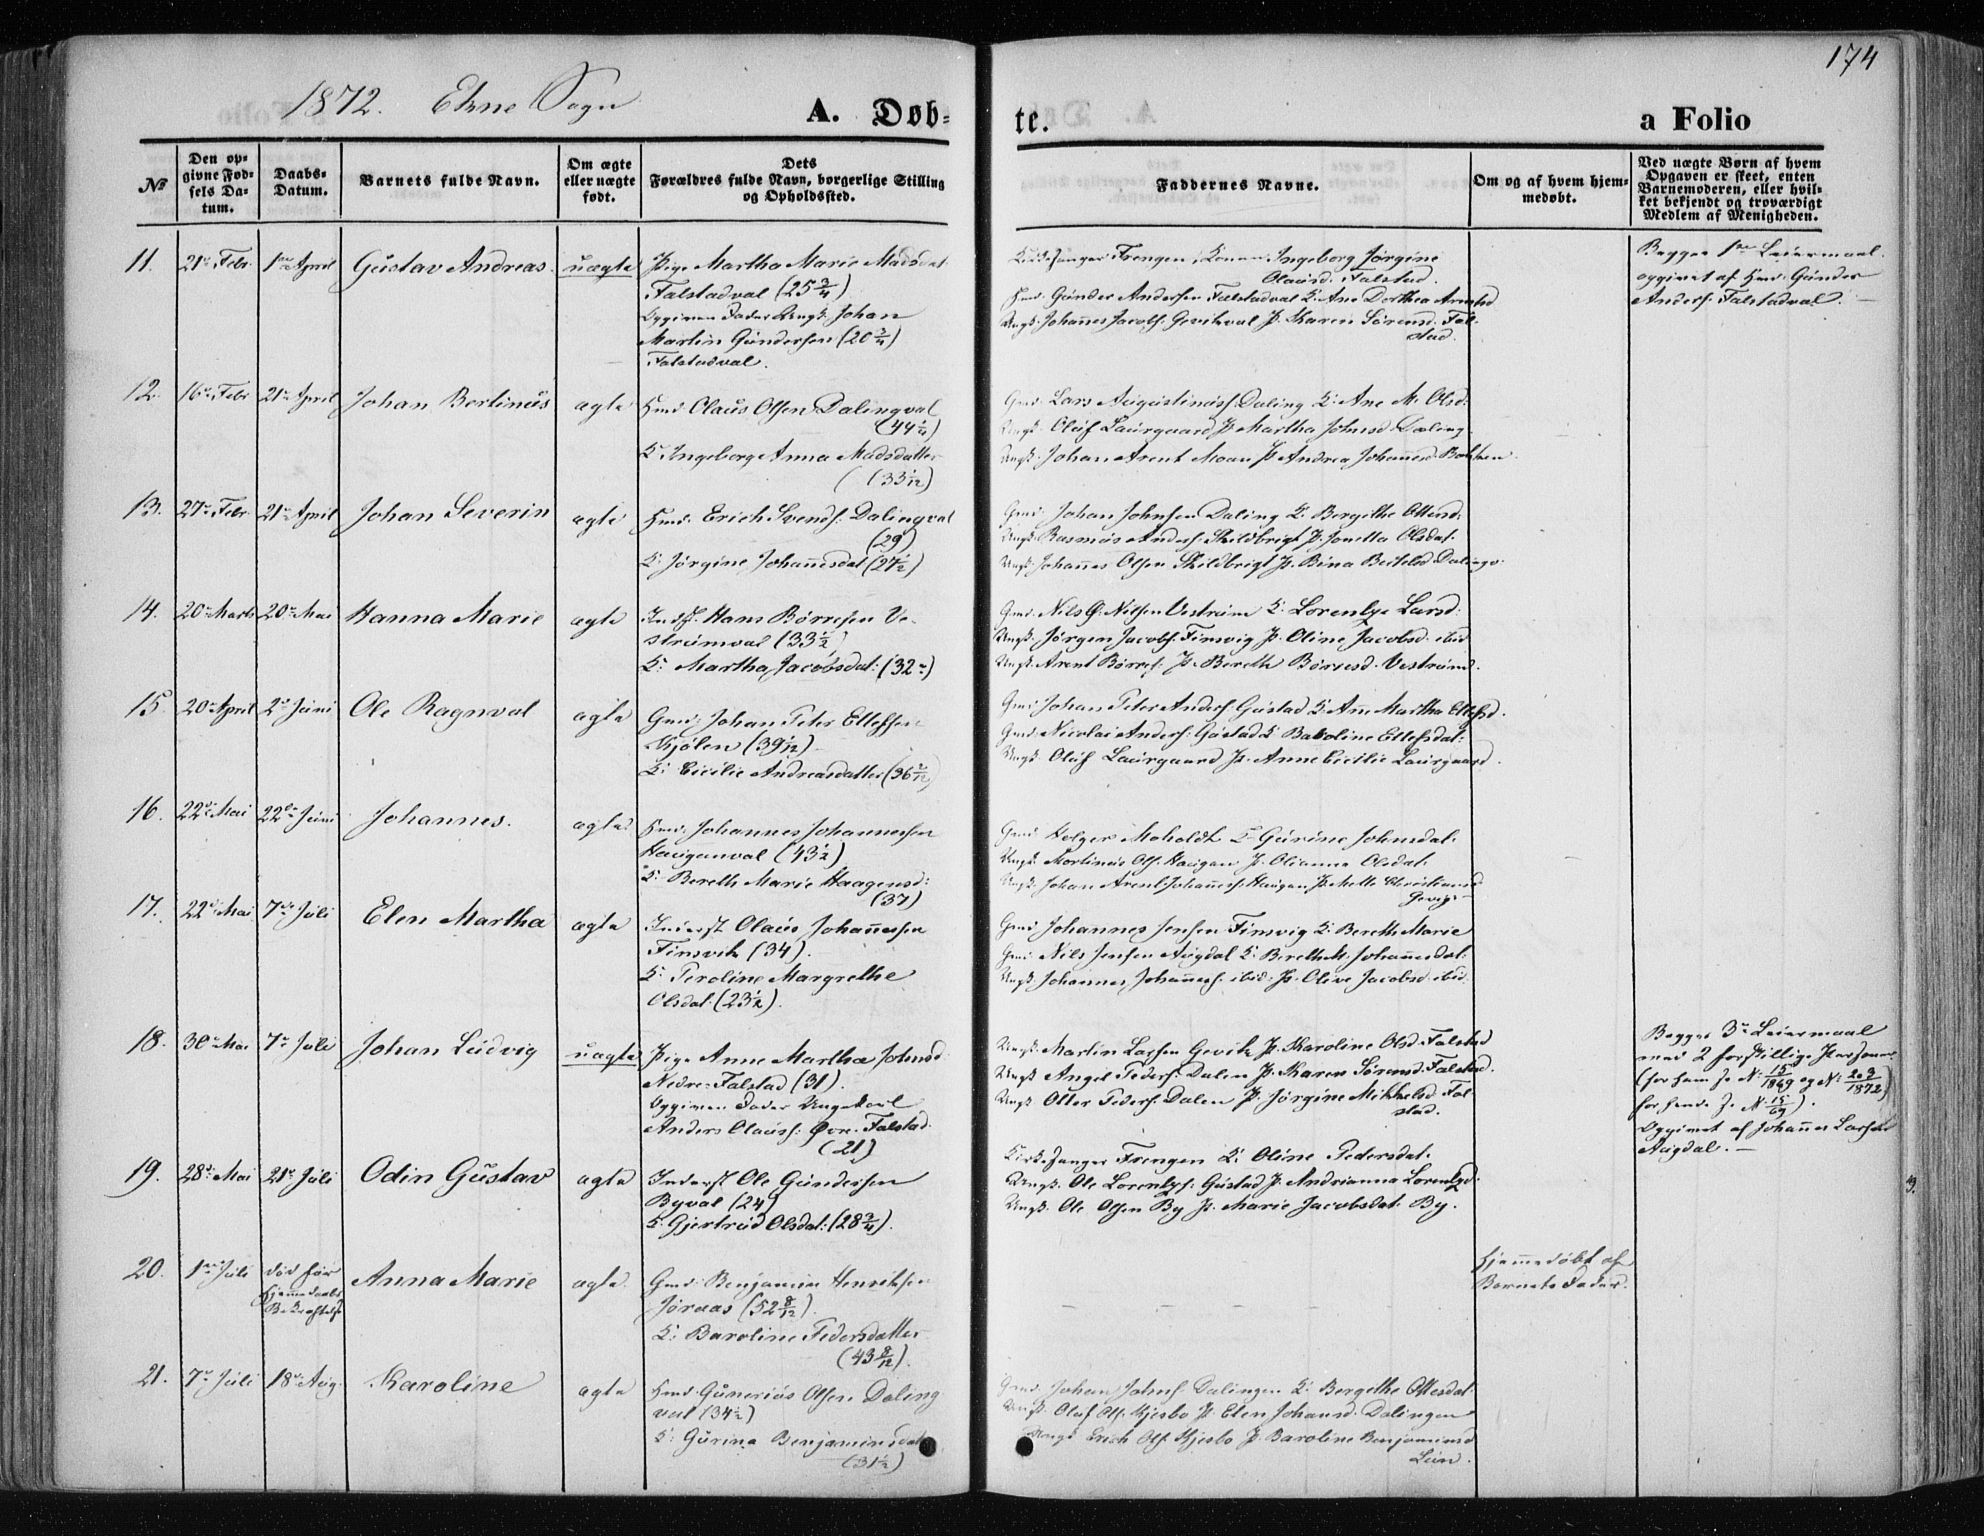 174
1872. Ekne Sogn
A. Døb-
te.
a Folio
No
Den op-
givne Fød-
sels Da-
tum.
Daabs-
Datum.
Barnets fulde Navn.
Om ægte
eller uægte
født.
Dets
Forældres fulde Navn, borgerlige Stilling
og Opholdssted.
Faddernes Navne.
Om og af hvem hjem-
medøbt.
Ved uægte Børn af hvem
Opgaven er skeet, enten
Barnemoderen, eller hvil-
ket bekjendt og troværdigt
Medlem af Menigheden.
11. 21de Febr. 1ste April Gustav Andreas. uægte Pige Martha Marie Madsdat.
Falstadval (25 3/4)
Opgiven Fader Ungk. Johan
Martin Gundersen (20 3/4)
Falstadval.
Kirkesanger Frengen, Konen Ingeborg Jørgine
Olausd. Falstad.
Hmd. Gunder Andersen Falstadval K. Ane Dorthea Arntsd
Ungk. Johannes Jacobs. Gevikval P. Karen Sørensd. Fal-
stad.
Begges 1ste Leiermaal.
opgivet af Hmd. Gunder
Anders. Falstadval.
12. 16de Febr 21de April Johan Bertinus ægte Hmd. Olaus Olsen Dalingval
(44 1/4)
K. Ingeborg Anna Madsdatter
(33 1/12)
Gmd. Lars Augustinuss. Daling K. Ane M. Olsd.
Ungk. Oluf Laurgaard P. Martha Johnsd. Daling
Ungk. Johan Arent Moan P. Andrea Johannesd. Bakken
13. 27de Febr. 21de April Johan Severin ægte Hmd. Erich Svends. Dalingval
(29)
K. Jørgine Johannesdat (27 1/2)
Gmd. Johan Johnsen Daling K. Bergithe Ottesd.
Ungk. Rasmus Anders. Skildbrigt P. Jonetta Olsdat.
Ungk. Johannes Olsen Skildbrigt P. Bina Bertelsd. Dalingv.
14. 20de Marts 20de Mai Hanna Marie ægte Indst. Hans Børresen Ve-
strumval (33 1/2)
K. Martha Jacobsdat. (32)
Gmd. Nils O. Nilsen Vestrum K. Lorentze Larsd.
Ungk. Jørgen Jacobs. Finsvig P. Oline Jacobsd. ibid
Ungk. Arent Børres. P. Bereth Børresd. Vestrum.
15. 20de April 2de Juni Ole Ragnval ægte Gmd. Johan Peter Ellefsen
Kjølen (39 1/12)
K. Cicilie Andreasdatter (36 2/12)
Gmd. Johan Peter Anders. Gustad K. Ane Martha Ellefsd.
Gmd. Nicolai Anders. Gustad K. Baroline Ellefsdat.
Ungk. Oluf Laurgaard P. Anne Cicilie Laurgaard.
16. 22de Mai 22de Juni Johannes. ægte Hmd. Johannes Johannessen
Hauganval (43 1/2)
K. Bereth Marie Haagensd.
(37)
Gmd. Holger Moholdt K. Gurine Johnsdat.
Ungk. Martinus Ols. Haugan P. Olianna Olsdat.
Ungk. Johan Arent Johannes. Haugan P. Mette Christiansd
Gevig
17. 22de Mai 7de Juli Elen Martha ægte Inderst Olaus Johannessen
Finsvik (34).
K. Peroline Margrethe
Olsdat. (23 1/2).
Gmd. Johannes Jensen Finsvig K. Bereth Marie
Gmd. Nils Jensen Augdal K. Bereth M. Johannesdat.
Ungk. Johannes Johannes. ibid. P. Oline Jacobsd. ibid.
18. 30te Mai 7de Juli Johan Ludvig uægte Pige Anne Martha Johnsd.
Nedre Falstad (31).
Opgiven Fader Ungekarl
Anders Olaus. Øvre Falstad.
(21)
Ungk. Martin Larsen Gevik P. Karoline Olsd. Falstad
Ungk. Angel Peders. Dalen P. Karen Sørensd. Falstad.
Ungk. Otter Peders. Dalen P. Jørgine Mikkelsd. Fal-
stad.
Begges 3de Leiermaal
med 2 forskillige Personer
(for ham No 15/1869 og No 2 og 3/1872)
for hende No 15/69).
Opgivet af Johannes Larsen
Augdal.
19. 28de Mai 21de Juli Odin Gustav ægte Inderst Ole Gundersen
Byval (24)
K. Gjertrud Olsdat. (28 3/4).
Kirkesanger Frengen K. Oline Pedersdat.
Ungk. Ole Lorentzs. Gustad P. Andrianna Lorentzd.
Ungk. Ole Olsen By P. Marie Jacobsdat. By.
20. 1ste Juli død før
Hjemmedaabs
Bekræftelse Anna Marie ægte. Gmd. Benjamin Henriksen
Jøraas (52 8/12)
K. Baroline Pedersdatter
(43 8/12).
Hjemmedøbt af
Barnets Fader.
21. 7de Juli 18de Aug. Karoline ægte Hmd. Gunerius Olsen Daling
val (34 1/2)
K. Gurina Benjaminsdat
(31 1/2)
Gmd. Johan Johns. Dalingen K. Bergethe Ottesdat.
Ungk. Oluf Ols. Hjesbo P. Elen Johansd. Dalingen
Ungk. Erich Ols. Hjesbo P. Baroline Benjaminsd
Lein.